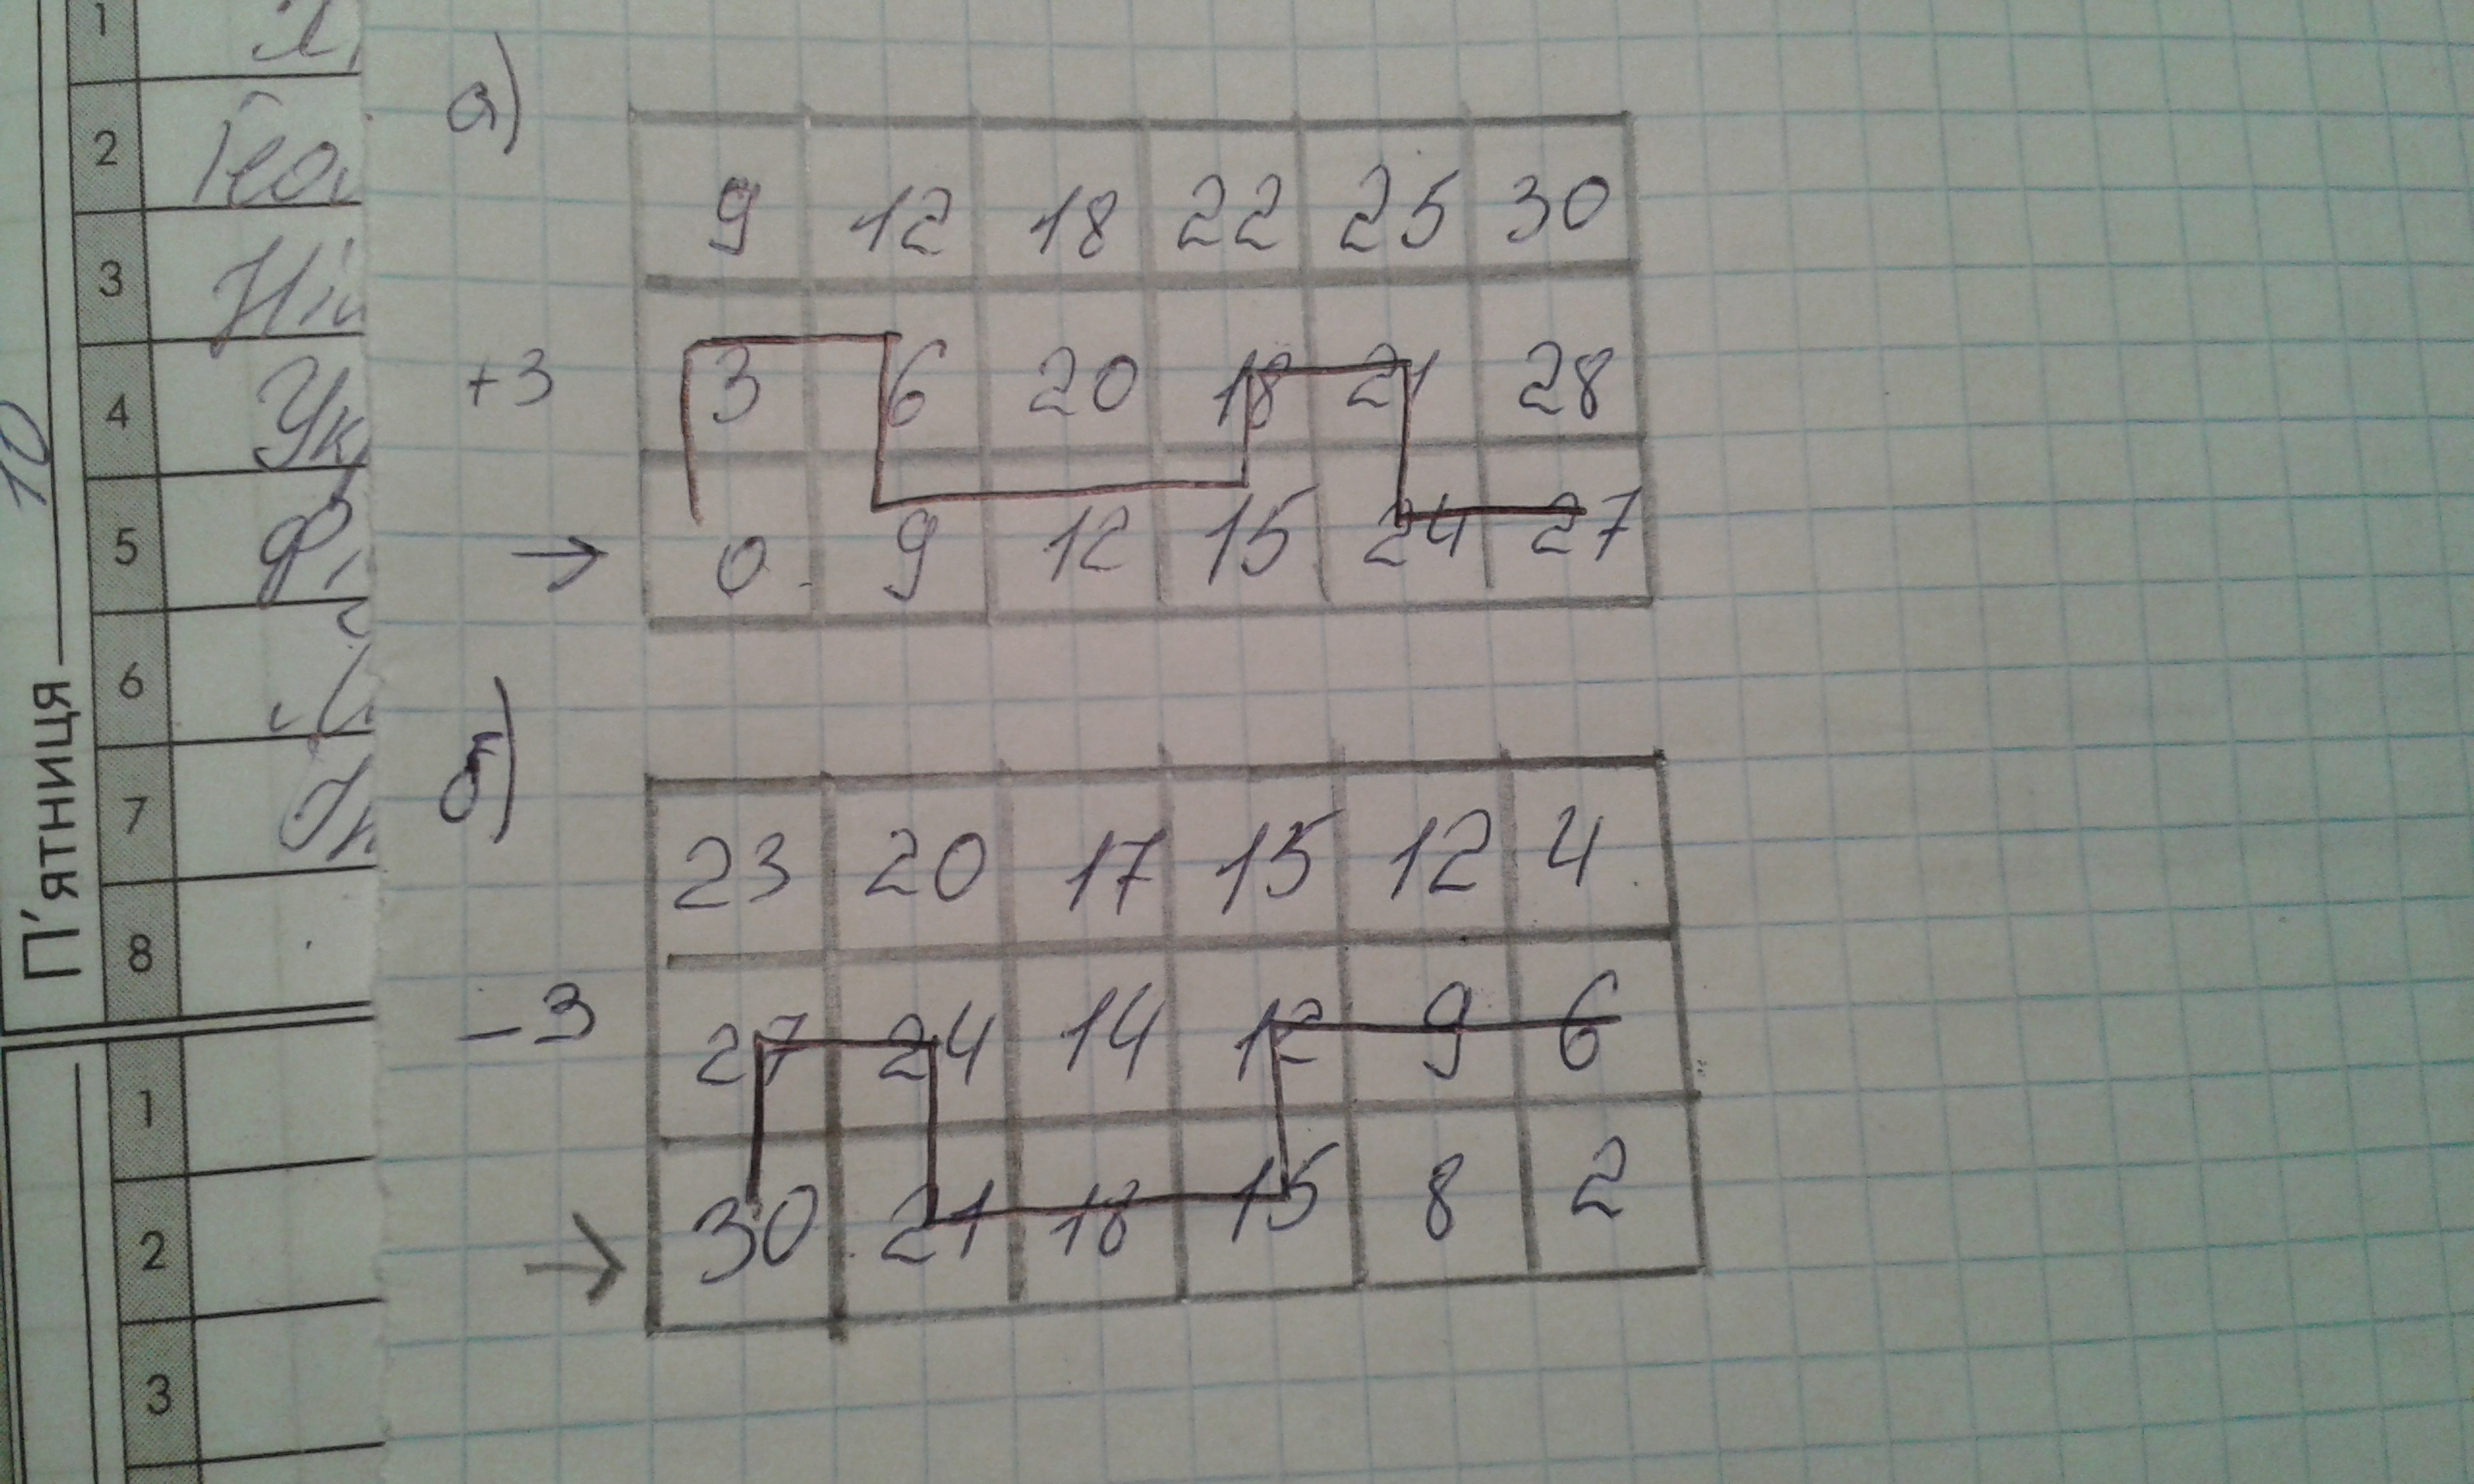 П'ятниця
10
1
2
3
4
5
6
7
8
1
2
3
а)
9 12 18 22 25 30
+3 3 6 20 18 21 28
→ 0 9 12 15 24 27
б)
23 20 17 15 12 4
-3 27 24 14 12 9 6
→ 30 21 18 15 8 2